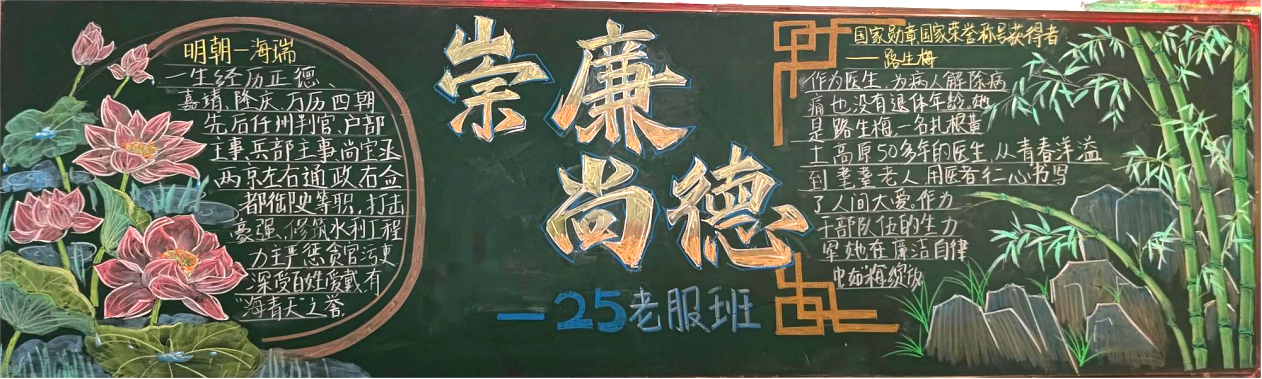 明朝—海瑞
一生经历正德、
嘉靖、隆庆、万历四朝
先后任州判官、户部
主事、兵部主事、尚宝丞
两京左右通政、右佥
都御史等职，打击
豪强、修筑水利工程
力主严惩贪官污吏
深受百姓爱戴，有
“海青天”之誉。
崇廉
尚德
—25老服班
国家勋章国家荣誉称号获得者
——路生梅
作为医生，为病人解除病
痛也没有退休年龄，她
是路生梅，一名扎根黄
土高原50多年的医生，从青春洋溢
到耄耋老人，用医者仁心书写
了人间大爱。作为
干部队伍的生力
军她在廉洁自律
中如梅绽放